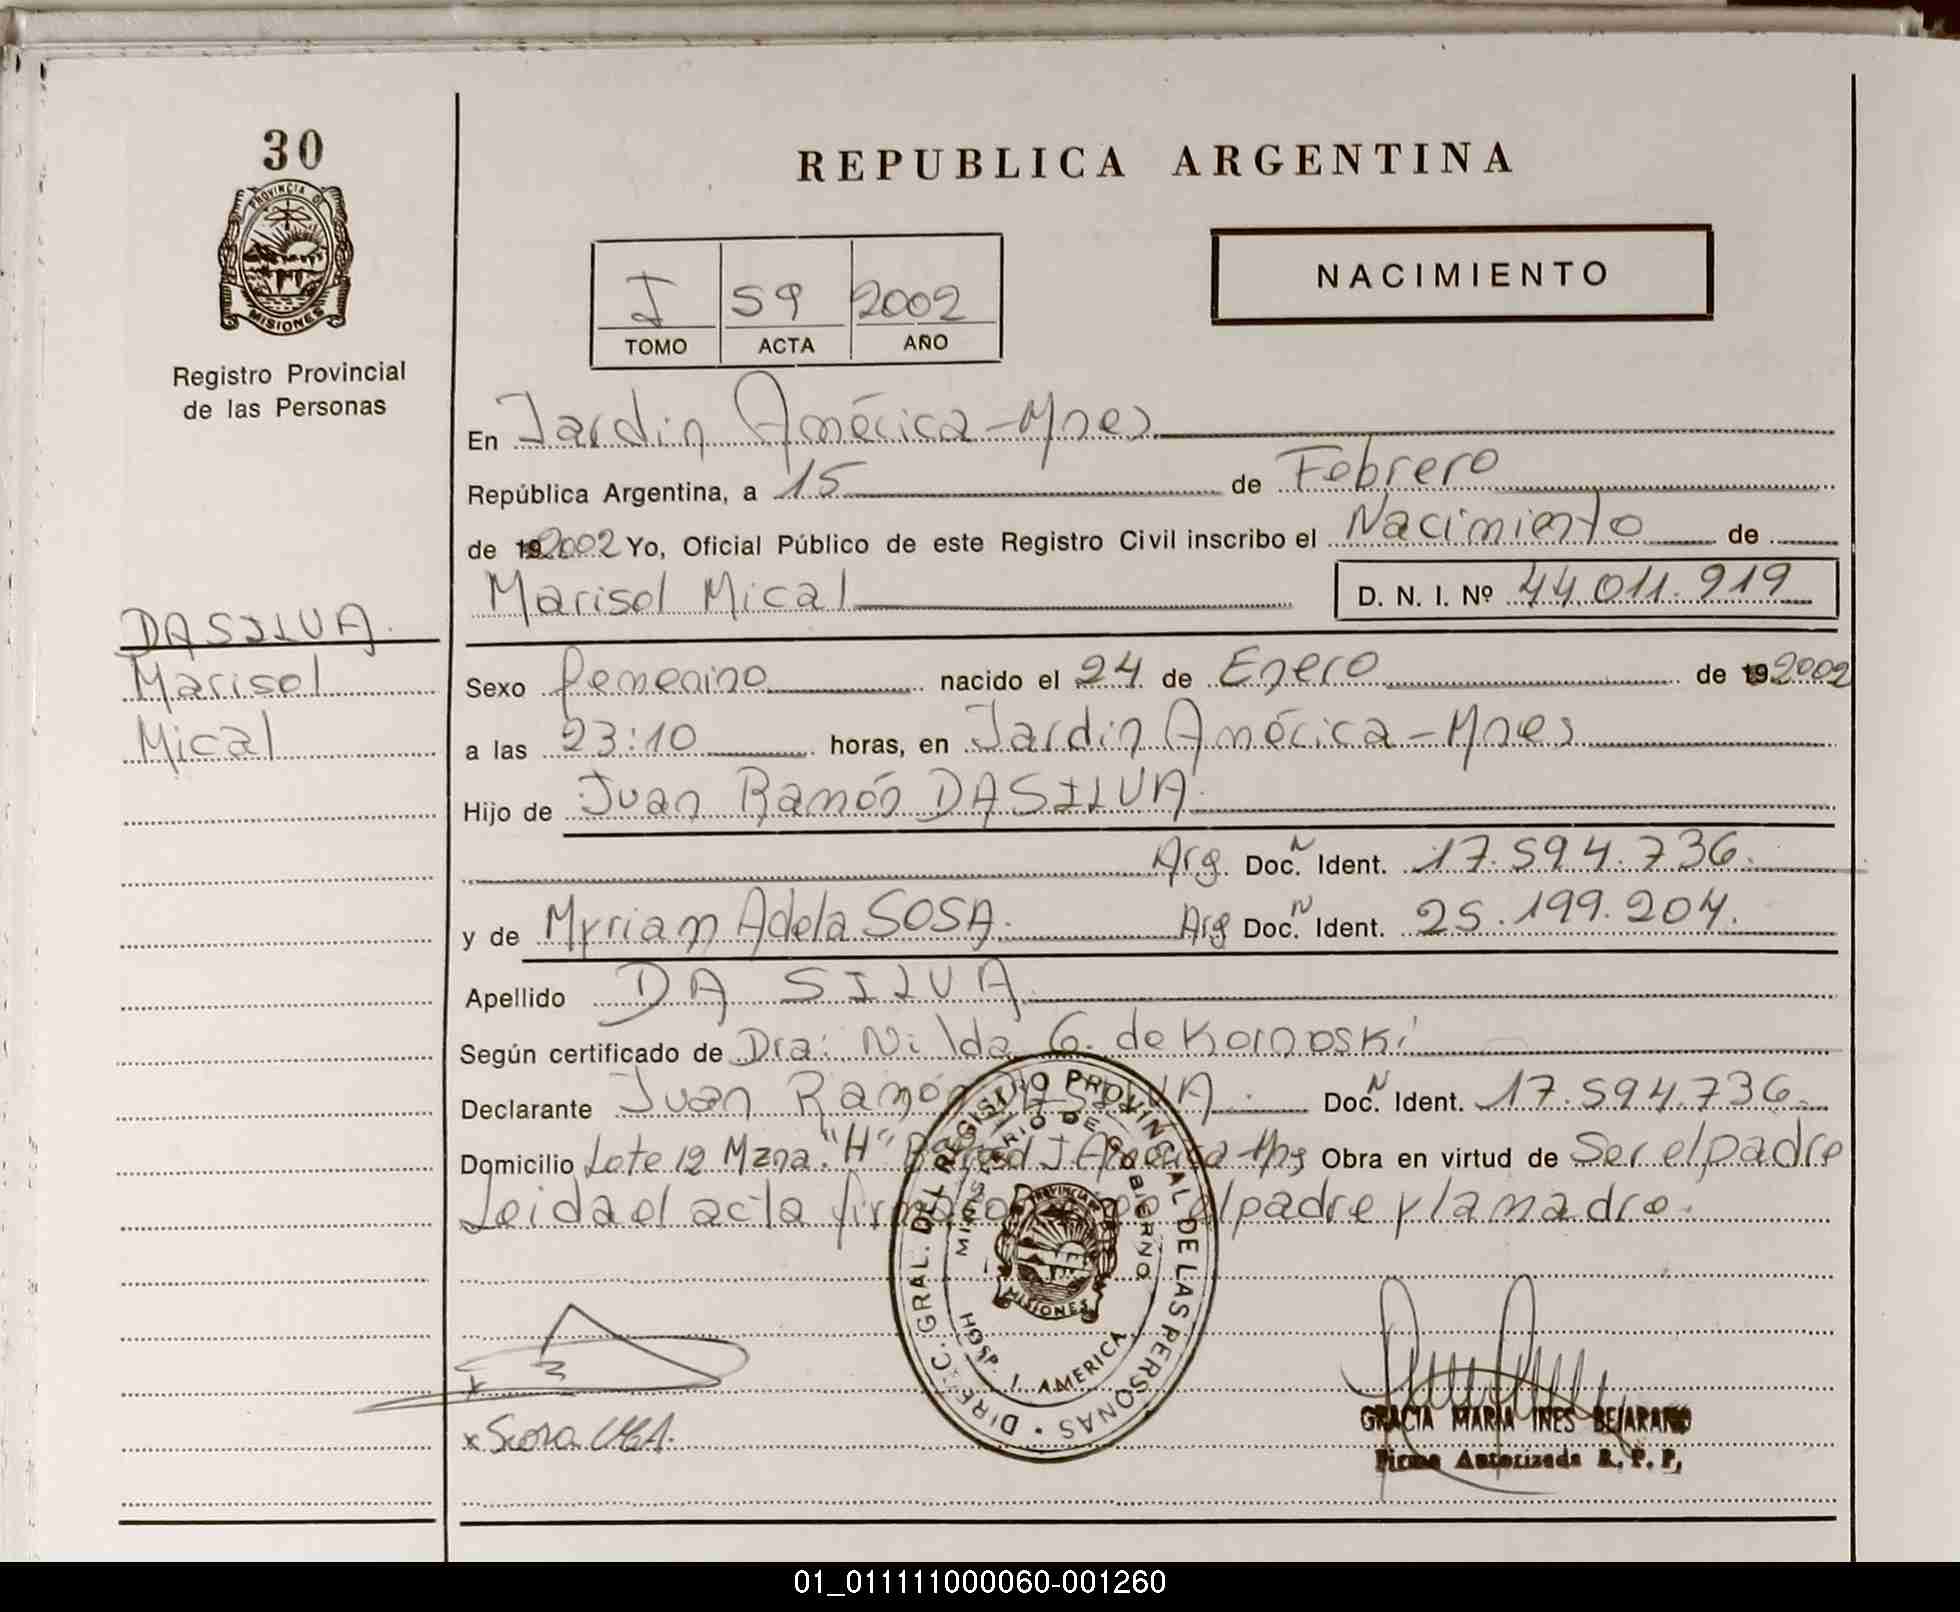 30
PROVINCIA DE
MISIONES
Registro Provincial
de las Personas
REPUBLICA ARGENTINA
NACIMIENTO
I 59 2002
TOMO ACTA AÑO
En Jardin América - Mnes
República Argentina, a 15 de Febrero
de 192002 Yo, Oficial Público de este Registro Civil inscribo el Nacimiento de
Marisol Mical D. N. I. Nº 44.011.919
DASILVA.
Marisol
Mical
Sexo femenino nacido el 24 de Enero de 192002
a las 23:10 horas, en Jardin América - Mnes
Hijo de Juan Ramón DASILVA.
Arg. Doc. N Ident. 17.594.736.
y de Myriam Adela SOSA. Arg Doc. N Ident. 25.199.204.
Apellido DA SILVA.
Según certificado de Dra: Nilda G. de Kornoski
Declarante Juan Ramón DASILVA. Doc. N Ident. 17.594.736.
Domicilio Lote 12 Mzna. "H" J América Mns Obra en virtud de Ser el padre
Leida el acta firman el padre y la madre.
DIREC. GRAL. DEL REGISTRO PROVINCIAL DE LAS PERSONAS
MINISTERIO DE GOBIERNO
PROVINCIA
MISIONES
HOSP. J. AMERICA
x Sosa M.A.
GRACIA MARIA INES BEJARANO
Firma Autorizada R. P. P.
01_011111000060-001260